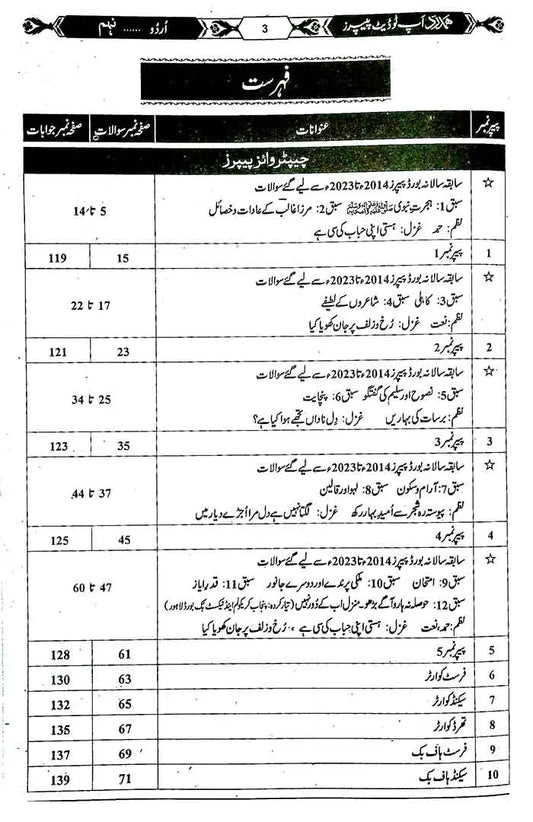 ہمدرد اَپ ٹو ڈیٹ پیپرز 3 اُردو ...... نہم
فہرست
پیپر نمبر عنوانات صفحہ نمبر سوالات صفحہ نمبر جوابات
چیپٹر وائز پیپرز
☆ سابقہ سالانہ بورڈ پیپرز 2014ء تا 2023ء سے لیے گئے سوالات
سبق 1: ہجرتِ نبوی ﷺ سبق 2: مرزا غالب کے عادات و خصائل 5 تا 14
نظم: حمد غزل: ہستی اپنی حباب کی سی ہے
1 پیپر نمبر 1 15 119
☆ سابقہ سالانہ بورڈ پیپرز 2014ء تا 2023ء سے لیے گئے سوالات
سبق 3: کاہلی سبق 4: شاعروں کے لطیفے 17 تا 22
نظم: نعت غزل: رُخ و زلف پر جان کھویا کیا
2 پیپر نمبر 2 23 121
☆ سابقہ سالانہ بورڈ پیپرز 2014ء تا 2023ء سے لیے گئے سوالات
سبق 5: نصوح اور سلیم کی گفتگو سبق 6: پنچایت 25 تا 34
نظم: برسات کی بہاریں غزل: دِل ناداں تجھے ہوا کیا ہے؟
3 پیپر نمبر 3 35 123
☆ سابقہ سالانہ بورڈ پیپرز 2014ء تا 2023ء سے لیے گئے سوالات
سبق 7: آرام و سکون سبق 8: لہو اور قالین 37 تا 44
نظم: پیوستہ رہ شجر سے اُمیدِ بہار رکھ غزل: لگتا نہیں ہے دل مرا اُجڑے دیار میں
4 پیپر نمبر 4 45 125
☆ سابقہ سالانہ بورڈ پیپرز 2014ء تا 2023ء سے لیے گئے سوالات
سبق 9: امتحان سبق 10: ملکی پرندے اور دوسرے جانور سبق 11: قدر ایاز 47 تا 60
سبق 12: حوصلہ نہ ہارو آگے بڑھو۔ منزل اب کے دُور نہیں (تیار کردہ: پنجاب کریکولم اینڈ ٹیکسٹ بک بورڈ لاہور)
نظم: حمد، نعت غزل: ہستی اپنی حباب کی سی ہے ، رُخ و زلف پر جان کھویا کیا
5 پیپر نمبر 5 61 128
6 فرسٹ کوارٹر 63 130
7 سیکنڈ کوارٹر 65 132
8 تھرڈ کوارٹر 67 135
9 فرسٹ ہاف بک 69 137
10 سیکنڈ ہاف بک 71 139